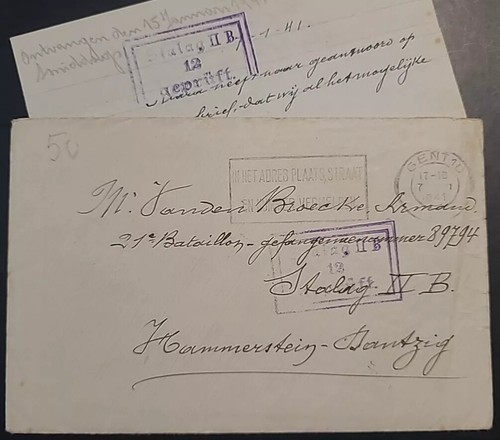 Ontvangen den 15 Januari
Smiddags
Stalag II B.
12
geprüft
-1-41.
Maria heeft naar geantwoord op
brief, dat wij al het mogelijke
50
IN HET ADRES PLAATS, STRAAT
GENT 1
Mr Vanden Broecke Armand.
21e Bataillon - gefangenennummer 89794
Stalag II B
12
Stalag II B.
Hammerstein - Dantzig